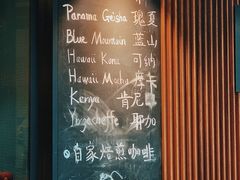 Panama Geisha 瑰夏
Blue Mountain 蓝山
Hawaii Kona 可纳
Hawaii Mocha 摩卡
Kenya 肯尼
Yirgacheffe 耶加
自家焙煎咖啡